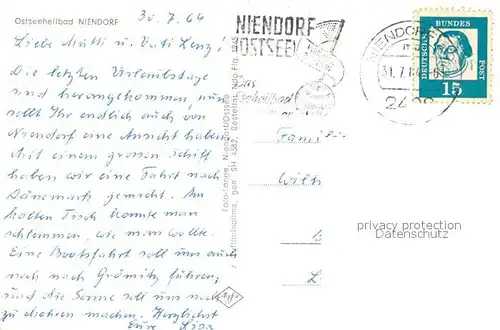 Ostseeheilbad NIENDORF
30.7.64
Liebe Mutti u. Vati Lenz!
Die letzten Urlaubstage
sind herangekommen, nun
sollt Ihr endlich auch von
Niendorf eine Ansicht haben.
Mit einem grossen Schiff
haben wir eine Fahrt nach
Dänemark gemacht. Am
kalten Tisch konnte man
schlemmen, wie man wollte.
Eine Bootsfahrt soll uns auch
noch nach Grömitz führen,
und die Sonne soll uns noch
zu Mohren machen. Herzlichst
Eure Lisa
Foto-Lange, Niendorf/Ostsee
Agfa
NIENDORF
OSTSEE
Das
Seeheilbad
NIENDORF
31.7.
DEUTSCHE BUNDES POST
15
Fami
Wilh
L
privacy protection
Datenschutz